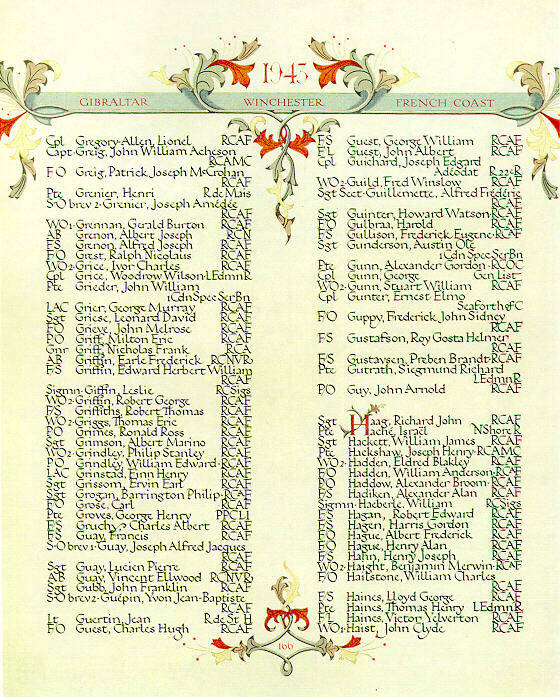 1943
GIBRALTAR WINCHESTER FRENCH COAST
Cpl Gregory-Allen, Lionel RCAF
Capt Greig, John William Acheson
RCAMC
FO Greig, Patrick, Joseph McCrohan
RCAF
Pte Grenier, Henri R de Mais
S-O brev 2 Grenier, Joseph Amédée
RCAF
WO1 Grennan, Gerald Burton RCAF
AB Grenon, Albert Joseph RCN
FS Grenon, Alfred Joseph RCAF
FO Grest, Ralph Nicolaus RCAF
WO2 Grice, Ivor Charles RCAF
Cpl Grice, Woodrow Wilson LEdmnR
Pte Grieder, John William
1CdnSpecSerBn
LAC Grier, George Murray RCAF
Sgt Griese, Leonard David RCAF
FO Grieve, John Melrose RCAF
PO Griff, Milton Eric RCAF
Gnr Griff, Nicholas Frank RCA
AB Griffin, Earle Frederick RCNVR
FS Griffin, Edward Herbert William
RCAF
Sigmn Giffin, Leslie RCSigs
WO2 Griffin, Robert George RCAF
FS Griffiths, Robert Thomas RCAF
WO2 Griggs, Thomas Eric RCAF
PO Grimes, Ronald Ross RCAF
Sgt Grimson, Albert Marino RCAF
WO2 Grindley, Philip Stanley RCAF
PO Grindley, William Edward RCAF
LAC Grinstad, Einn Henry RCAF
Sgt Grissom, Ervin Earl RCAF
Sgt Grogan, Barrington Philip RCAF
FO Grose, Carl RCAF
Pte Groves, George Henry PPCLI
FS Gruchy, Charles Albert RCAF
FS Guay, Francis RCAF
S-O brev 1 Guay, Joseph Alfred Jacques
RCAF
Sgt Guay, Lucien Pierre RCAF
AB Guay, Vincent Ellwood RCNVR
Sgt Gubb, John Franklin RCAF
S-O brev 2 Guépin, Yvon Jean-Baptiste
RCAF
Lt Guertin, Jean R de St H
FO Guest, Charles Hugh RCAF
FS Guest, George William RCAF
FL Guest, John Albert RCAF
Cpl Guichard, Joseph Edgard
Adeodat R22eR
WO2 Guild, Fred Winslow RCAF
Sgt Sect Guillemette, Alfred Frédéric
RCAF
Sgt Guinter, Howard Watson RCAF
FO Gulbraa, Harold RCAF
FS Gullison, Frederick Eugene RCAF
Sgt Gunderson, Austin Ole
1CdnSpecSerBn
Pte Gunn, Alexander Gordon RCOC
Cpl Gunn, George Gen List
WO2 Gunn, Stuart William RCAF
Cpl Gunter, Ernest Elmo
SeaforthofC
FO Guppy, Frederick John Sidney
RCAF
FS Gustafson, Roy Gosta Helmer
RCAF
FS Gustavsen, Preben Brandt RCAF
Pte Gutrath, Siegmund Richard
LEdmnR
PO Guy, John Arnold RCAF
Sgt Haag, Richard John RCAF
Pte Haché, Israël NShoreR
Sgt Hackett, William James RCAF
Pte Hackshaw, Joseph Henry RCAMC
WO2 Hadden, Eldred Blakley RCAF
FO Hadden, William Anderson RCAF
PO Haddow, Alexander Broom RCAF
FS Hadiken, Alexander Alan RCAF
Sigmn Haeberle, William RCSigs
FS Hagan, Robert Edward RCAF
FS Hagen, Harris Gordon RCAF
FO Hague, Albert Frederick RCAF
FO Hague, Henry Alan RCAF
FS Hahn, Henry Joseph RCAF
WO2 Haight, Benjamin Merwin RCAF
FO Hailstone, William Charles
RCAF
FS Haines, Lloyd George RCAF
Pte Haines, Thomas Henry LEdmnR
FL Haines, Victor Yelverton RCAF
WO1 Haist, John Clyde RCAF
166